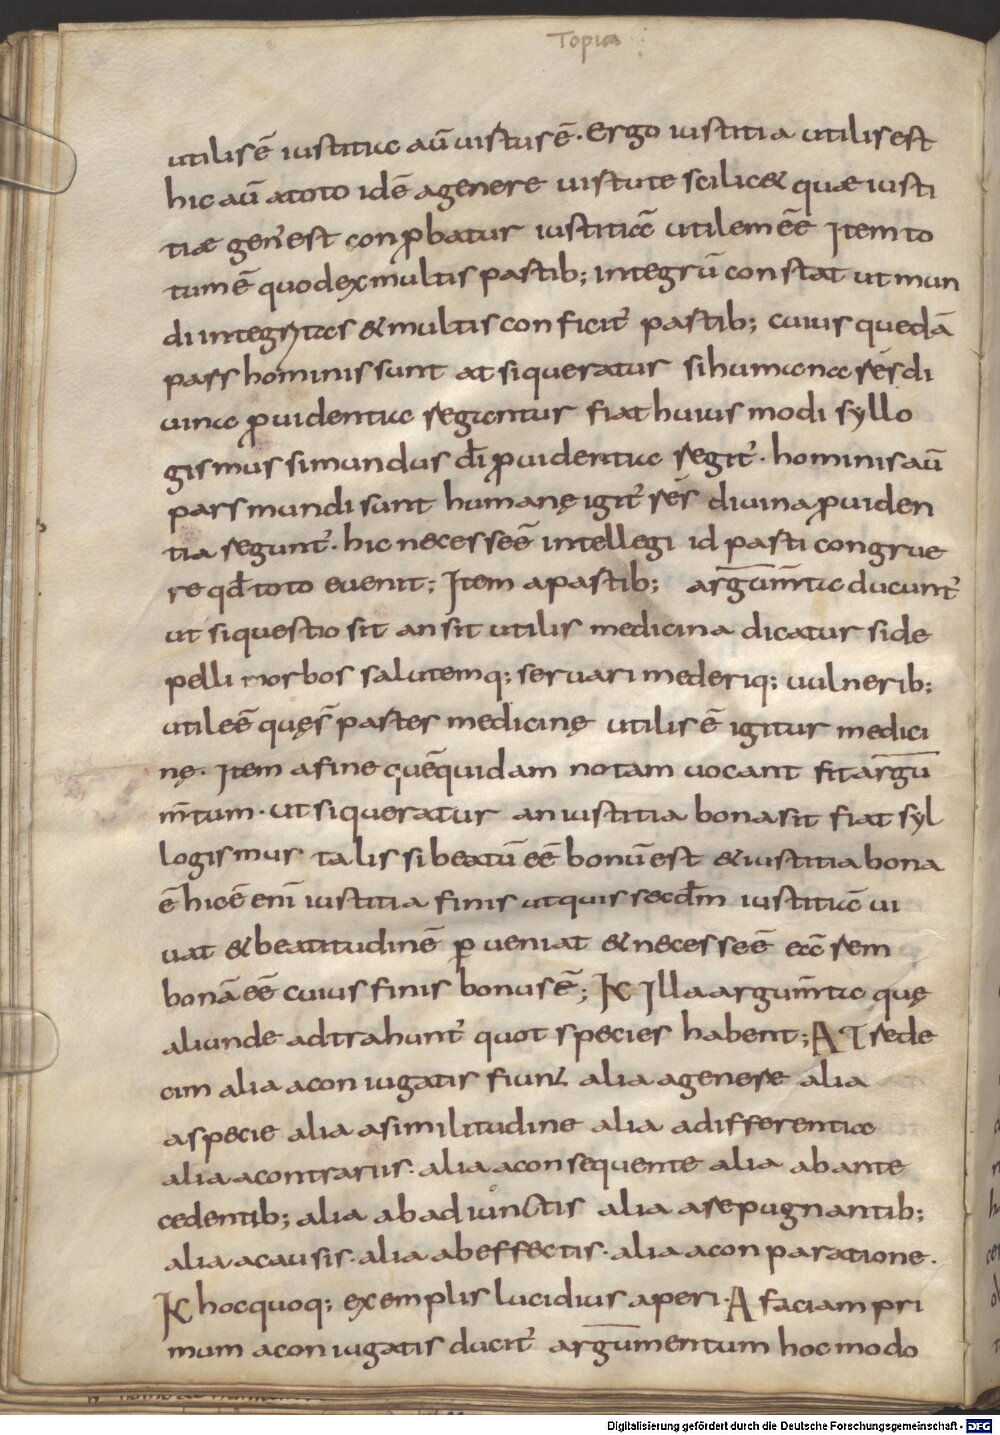 Topica
utilis ē iustitia aū uirtus ē. Ergo iustitia utilis est
hic aū a toto id ē a genere uirtute scilic& quae iusti
tiae gen' est conp̱batur iustitiā utilem ēē Item to
tum ē quod ex multis partib; integrū constat ut mun
di integritas & multis conficit' partib; cuius quedā
pars hominis sunt at si queratur si humanae res di
uina p̱uidentia reguntur fiat huius modi syllo
gismus si mundus di p̱uidentia regit'. hominis aū
pars mundi sunt humanę igit' res diuina p̱uiden
tia regunt'. hic necesse ē intellegi id parti congrue
re qd toto euenit; Item a partib; argum̄ta ducunt'
ut si questio sit an sit utilis medicina dicatur si de
pelli morbos salutemq; seruari mederiq; uulnerib;
utile ē quę s̄ partes medicinę utilis ē igitur medici
nę. Item a fine quē quidam notam uocant fit argu
m̄tum. ut si queratur an iustitia bona sit fiat syl
logismus talis si beatū ēē bonū est & iustitia bona
ē hic ē enī iustitia finis ut quis secdm iustitiā ui
uat & beatitudinē p̱ueniat & necesse ē eā rem
bonā ēē cuius finis bonus ē; K Illa argum̄ta quę
aliunde adtrahunt' quot species habent; A I sede
cim alia a coniugatis fiunt alia a genere alia
a specie alia a similitudine alia a differentia
alia a contrariis. alia a consequente alia ab ante
cedentib; alia ab adiunctis alia a repugnantib;
alia a causis. alia ab effectis. alia a conparatione.
K hoc quoq; exemplis lucidius aperi. A faciam pri
mum a coniugatis ducit' argumentum hoc modo
Digitalisierung gefördert durch die Deutsche Forschungsgemeinschaft - DFG